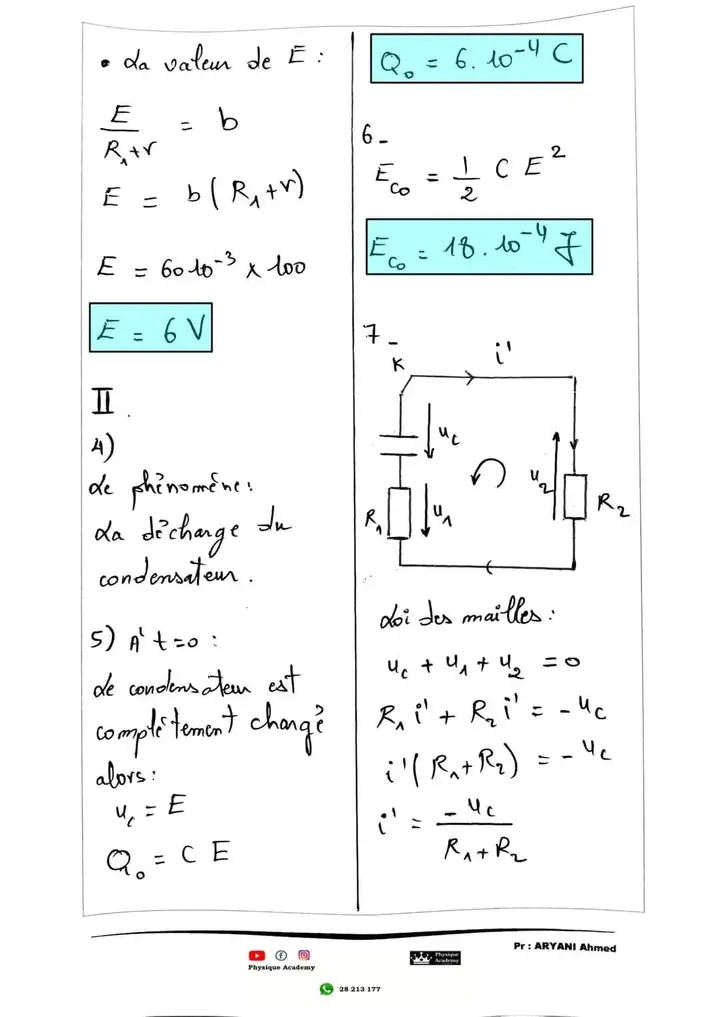 • La valeur de E :
E / (R₁+r) = b
E = b(R₁+r)
E = 60 10⁻³ x 100
E = 6 V
II.
4)
Le phénomène:
La décharge du
condensateur.
5) A' t=0 :
Le condensateur est
complètement chargé
alors:
u_c = E
Q₀ = C E
Q₀ = 6. 10⁻⁴ C
6-
E_C0 = 1/2 C E²
E_C0 = 18. 10⁻⁴ J
7-
K
i'
u_c
u₂
R₂
R₁
u₁
Loi des mailles:
u_c + u₁ + u₂ = 0
R₁ i' + R₂ i' = - u_c
i'(R₁+R₂) = - u_c
i' = - u_c / (R₁+R₂)
Pr : ARYANI Ahmed
Physique Academy
Physique
Academy
28 213 177